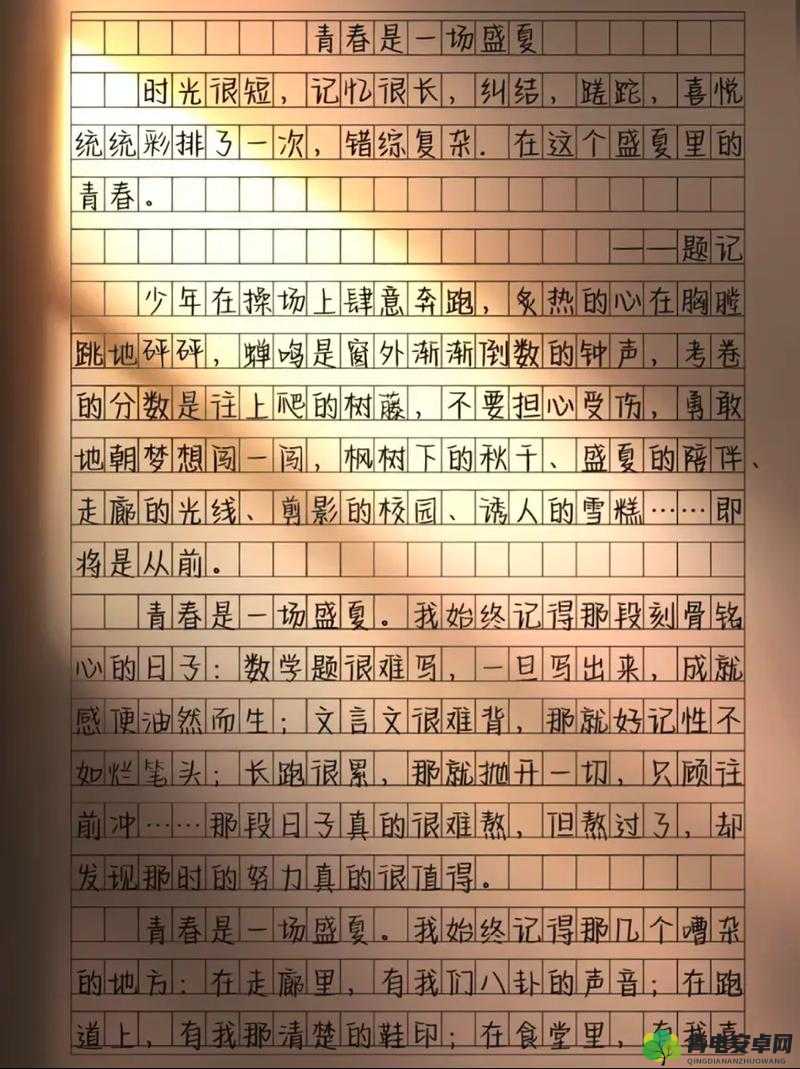 青春是一场盛夏
时光很短，记忆很长，纠结，蹉跎，喜悦
统统彩排了一次，错综复杂．在这个盛夏里的
青春。
——题记
少年在操场上肆意奔跑，炙热的心在胸膛
跳地砰砰，蝉鸣是窗外渐渐倒数的钟声，考卷
的分数是往上爬的树藤，不要担心受伤，勇敢
地朝梦想闯一闯，枫树下的秋千、盛夏的陪伴、
走廊的光线、剪影的校园、诱人的雪糕……即
将是从前。
青春是一场盛夏。我始终记得那段刻骨铭
心的日子：数学题很难写，一旦写出来，成就
感便油然而生；文言文很难背，那就好记性不
如烂笔头；长跑很累，那就抛开一切，只顾往
前冲……那段日子真的很难熬，但熬过了，却
发现那时的努力真的很值得。
青春是一场盛夏。我始终记得那几个嘈杂
的地方：在走廊里，有我们八卦的声音；在跑
道上，有我那清楚的鞋印；在食堂里，有我
电安卓网
QINGDIANANZHUOWANG